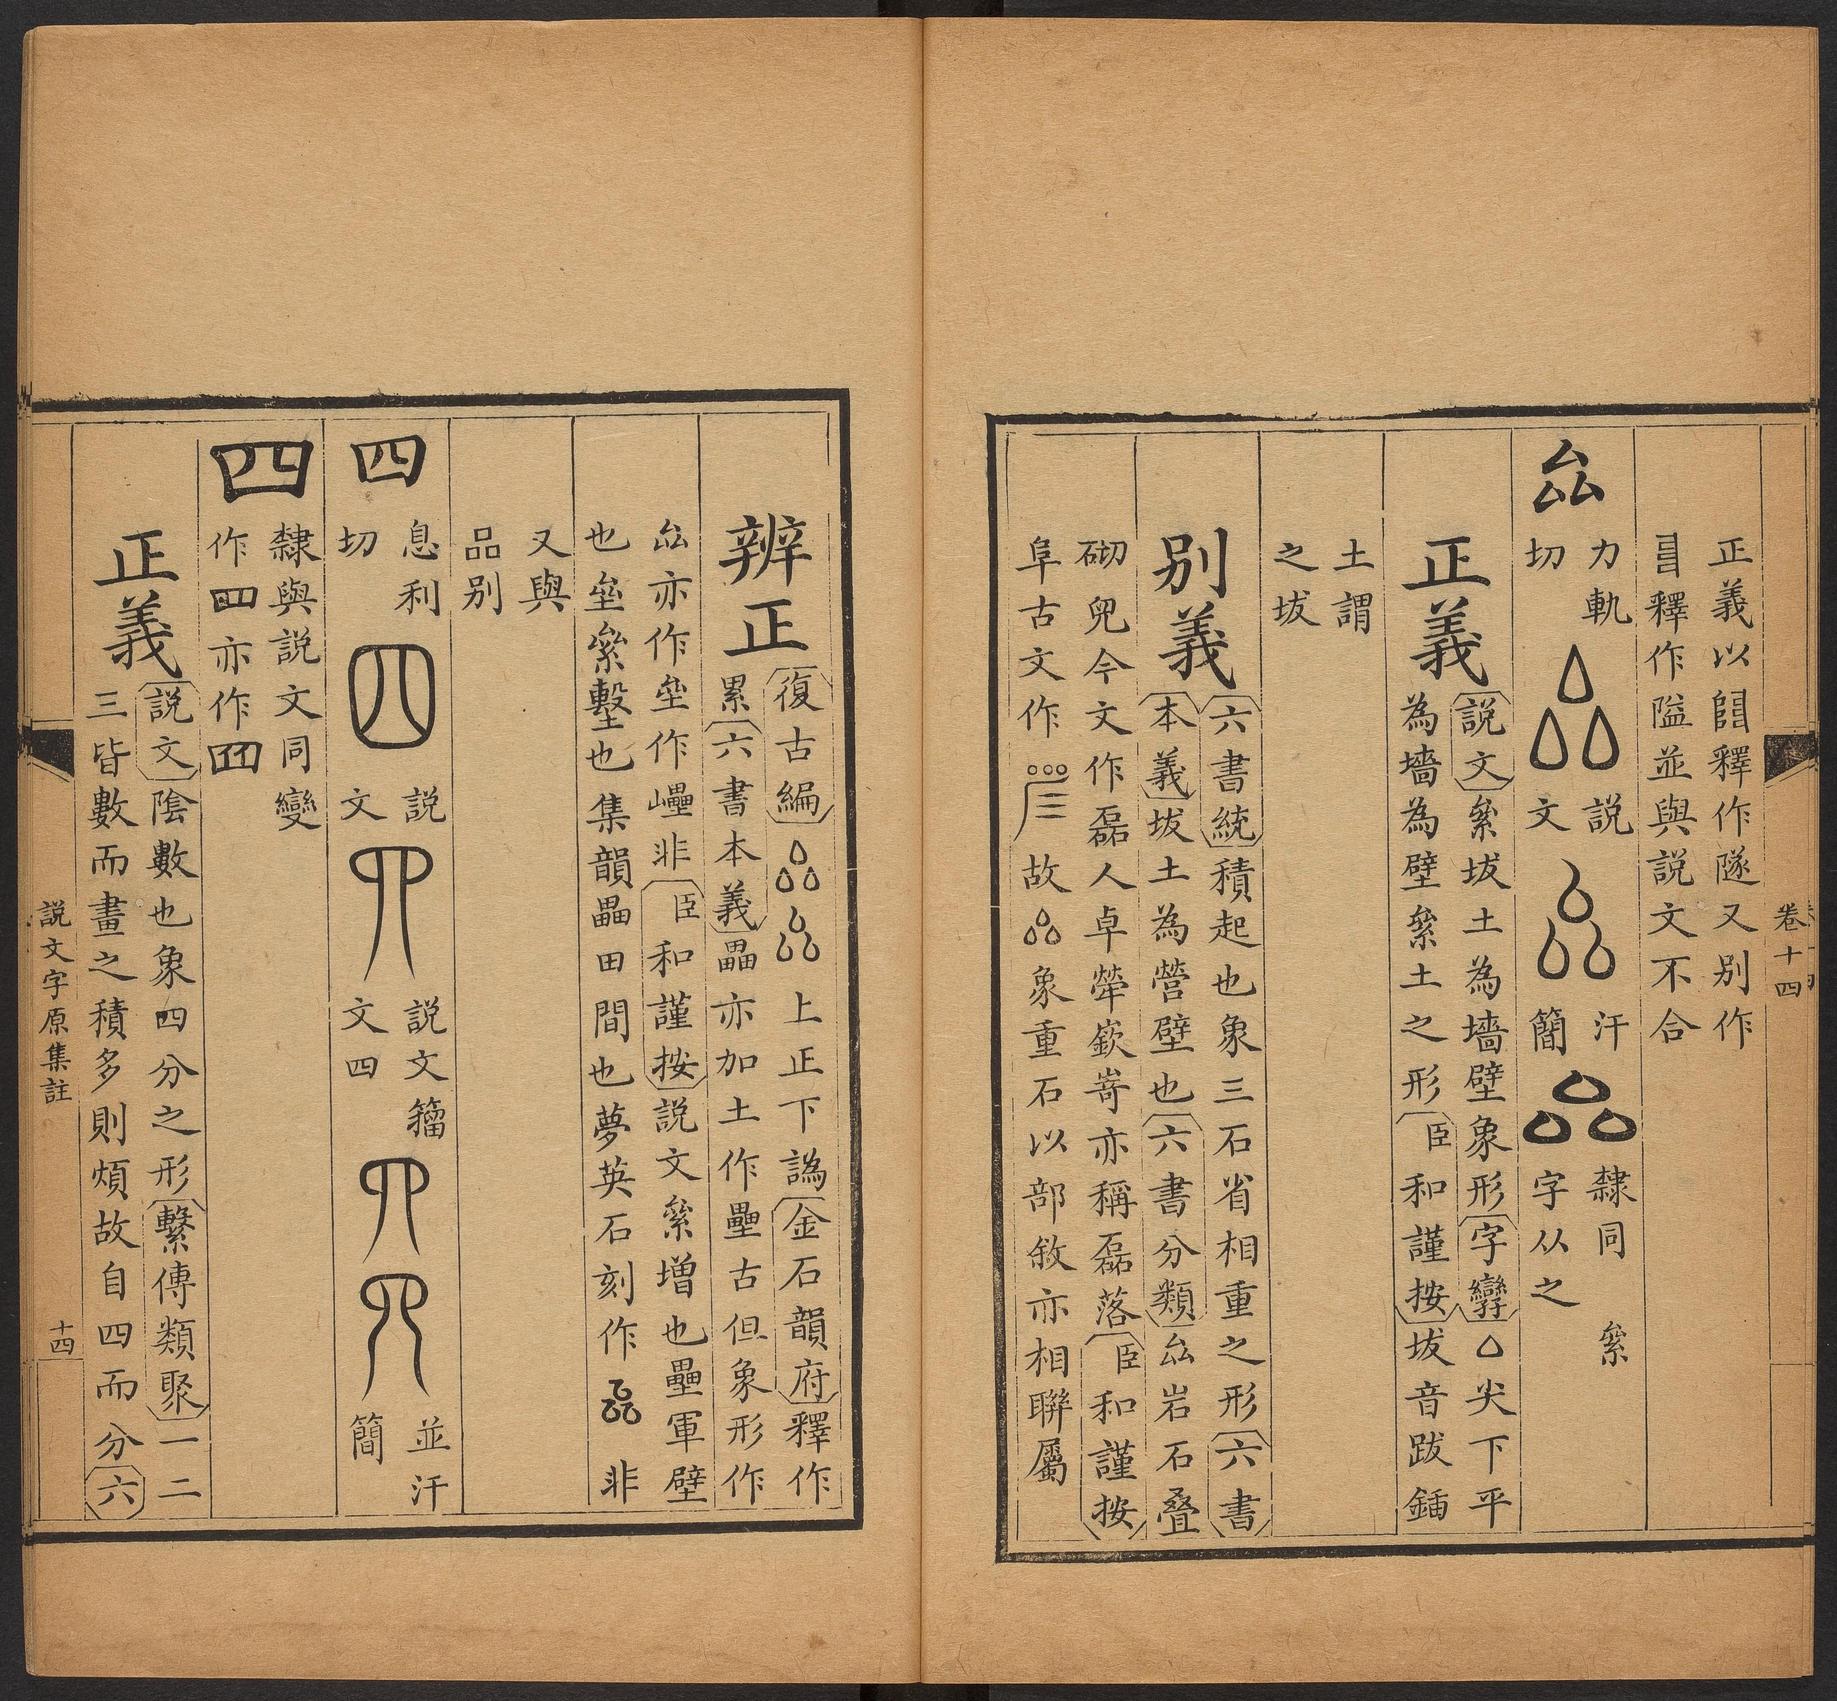 正義以𨺅釋作隧又别作
𨸏釋作隘並與説文不合
厽 力軌切 説文 汗簡 隸同 字从之 絫
正義 説文 絫坺土為墻壁象形 字孿 尖下平
為墻為壁絫土之形 臣和謹按 坺音跋鍤
土謂
之坺
别義 六書統 積起也象三石省相重之形 六書
本義 坺土為營壁也 六書分類 厽岩石叠
砌皃今文作磊人卓犖嶔嵜亦稱磊落 臣和謹按
阜古文作 故 象重石以部敘亦相聯屬
卷十四
辨正 復古編 上正下譌 金石韻府 釋作
累 六書本義 畾亦加土作壘古但象形作
厽亦作垒作㠥非 臣和謹按 説文絫增也壘軍壁
也垒絫墼也集韻畾田間也夢英石刻作 非
又與
品别
四 息利切 説文 説文籀文四 並汗簡
四 隸與説文同變
作 亦作
正義 説文 陰數也象四分之形 繫傳類聚 一二
三皆數而畫之積多則煩故自四而分 六
説文字原集註 十四